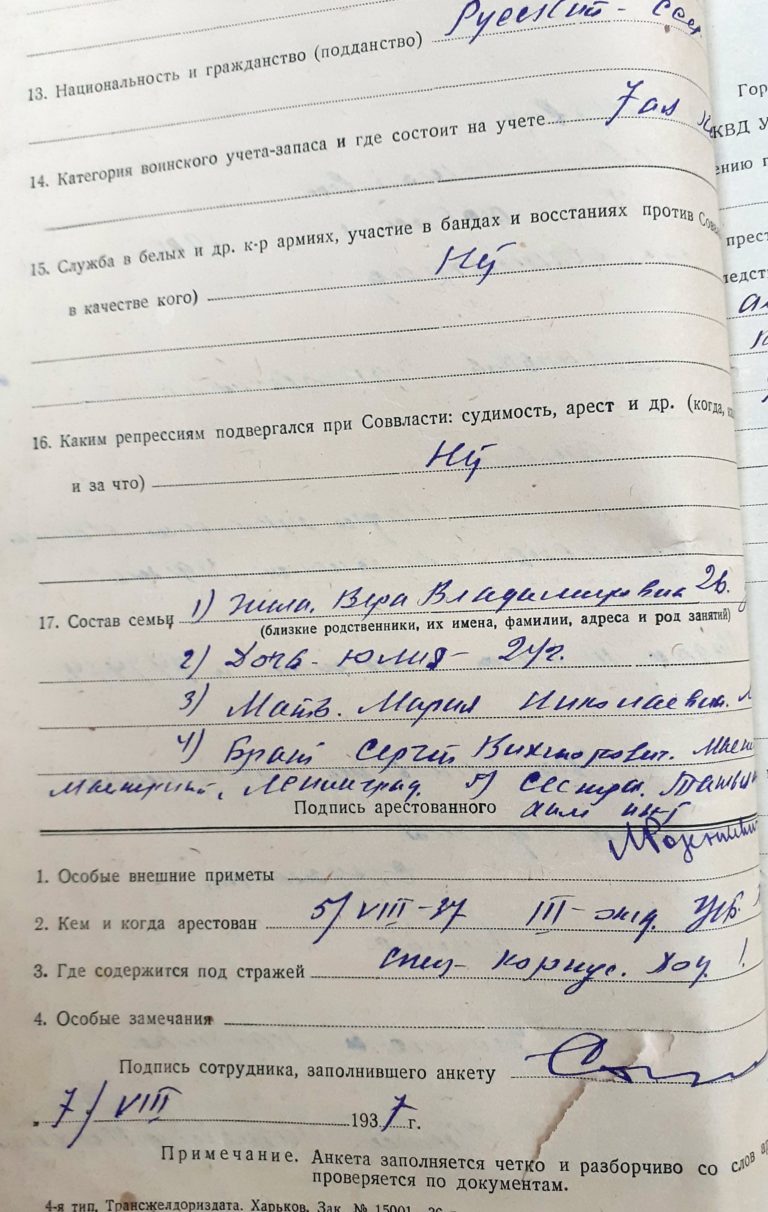 13. Национальность и гражданство (подданство) Русский - ссс
14. Категория воинского учета-запаса и где состоит на учете
15. Служба в белых и др. к-р армиях, участие в бандах и восстаниях против Совв
в качестве кого) Нет
16. Каким репрессиям подвергался при Соввласти: судимость, арест и др. (когда,
и за что) Нет
17. Состав семьи 1) Жена. Вера Владимировна
(близкие родственники, их имена, фамилии, адреса и род занятий)
2) Дочь - Юлия -
3) Мать. Мария Николаевна.
4) Брат Сергей Викторович.
Ленинград. 5) Сестра.
Подпись арестованного
1. Особые внешние приметы
2. Кем и когда арестован 5/VIII-37 III-
3. Где содержится под стражей Спец-корпус.
4. Особые замечания
Подпись сотрудника, заполнившего анкету
„ 7/VIII 1937 г.
Примечание. Анкета заполняется четко и разборчиво со слов
проверяется по документам.
4-я тип. Трансжелдориздата. Харьков. Зак. № 15001
Гор
КВД У
ению п
прест
ледст